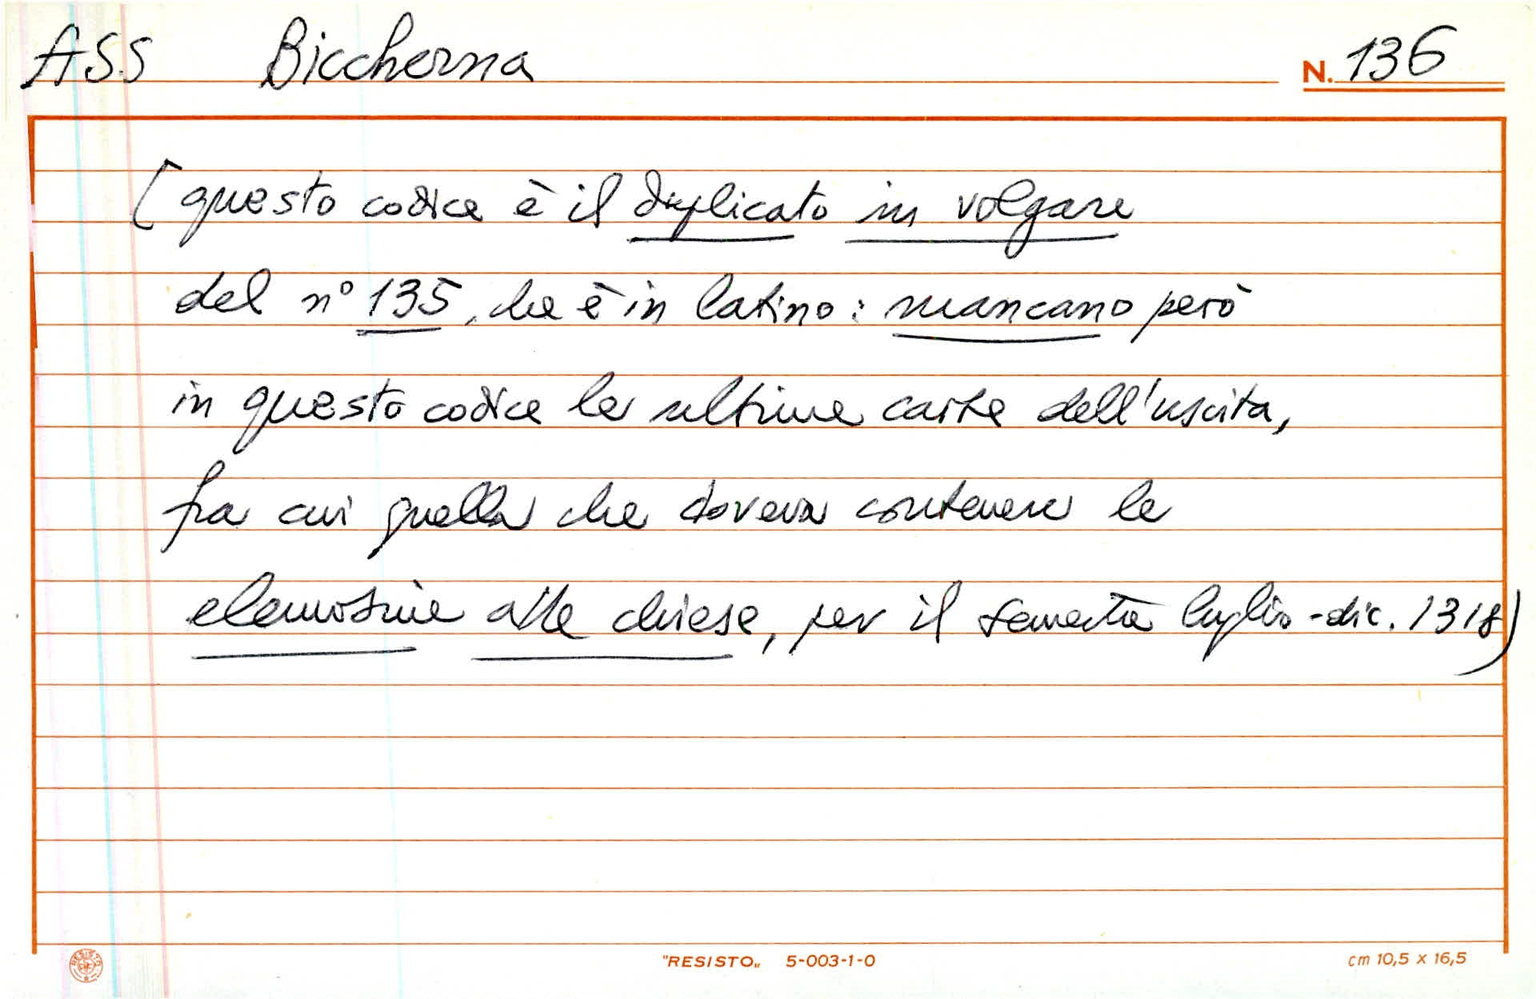 ASS Biccherna N. 136
[questo codice è il duplicato in volgare
del n° 135, che è in latino: mancano però
in questo codice le ultime carte dell'uscita,
fra cui quella che doveva contenere le
elemosine alle chiese, per il semestre luglio-dic. 1318)
"RESISTO„ 5-003-1-0 cm 10,5 x 16,5